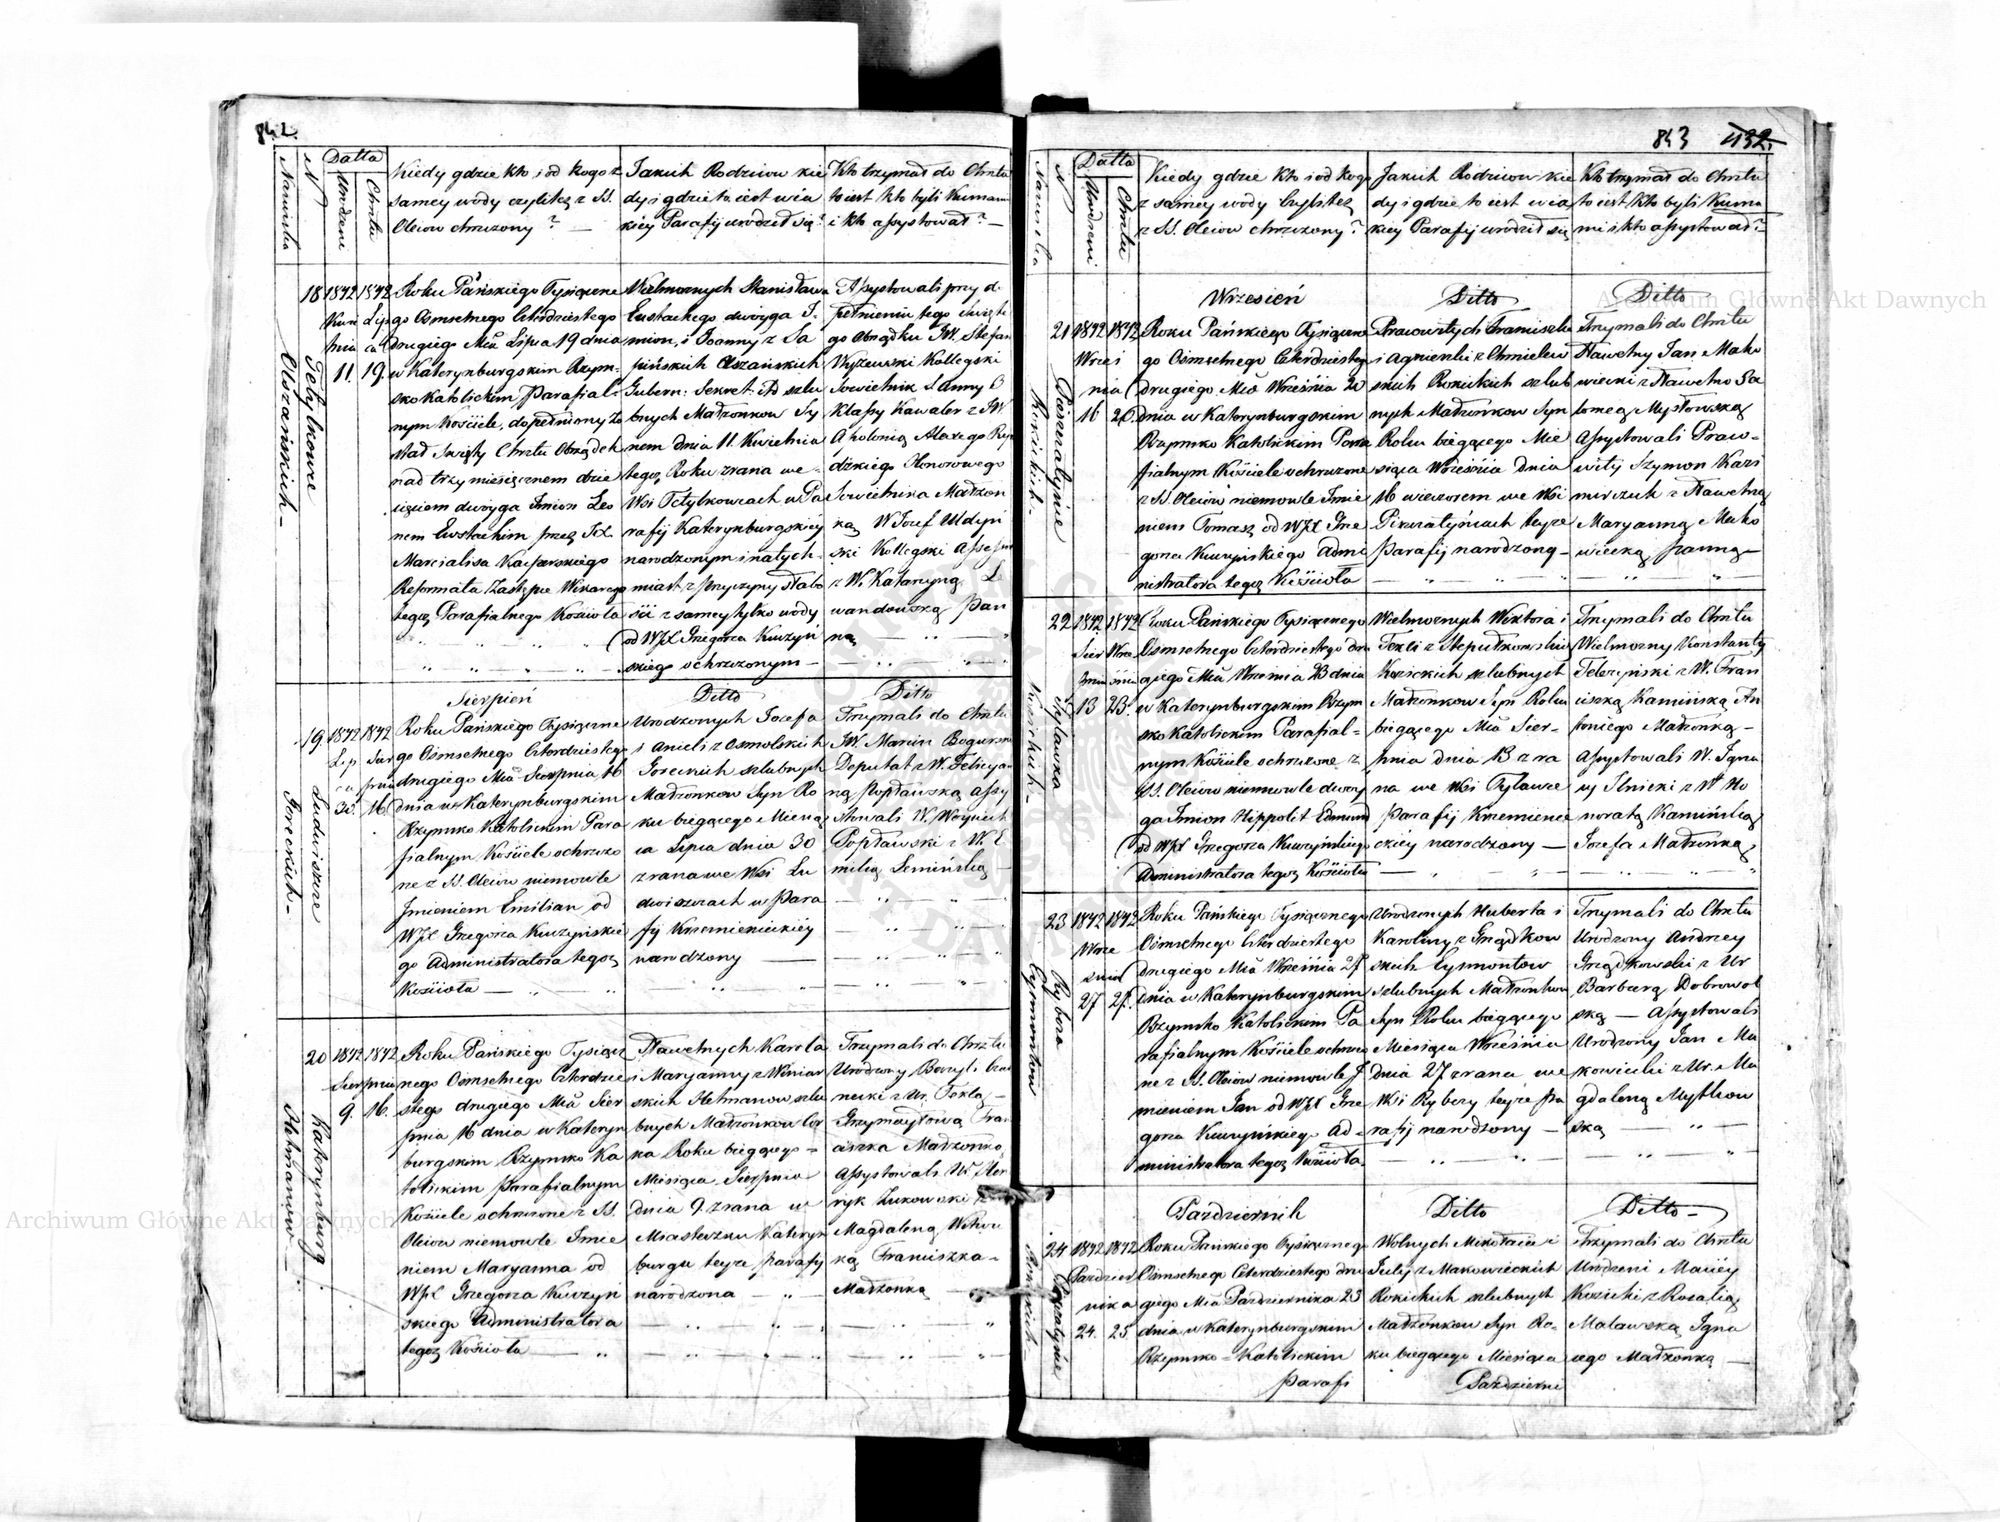 842.
Nazwiska
N
Datta
Urodzeni
Chrztu
Kiedy gdzie kto i od kogo z
samey wody czyli też z SS.
Oleiow chrzczony? —
Jakich Rodziców kie
dy i gdzie to iest w ia
kiey Parafij urodził się?
Kto trzymał do Chrztu
to iest kto byli Kumami
i kto assystował? —
18
Tetylkowce
Olszańskich —
1842
Kwie
tnia
11.
1842
Lip
ca
19.
Roku Pańskiego Tysiączne
go Osmsetnego Czterdziestego
drugiego Mca Lipca 19 dnia
w Katerynburgskim Rzym-
sko Katolickim Parafial-
nym Kościele, dopełniony zo
stał Święty Chrztu Obrządek
nad trzymiesięcznem dzie
cięciem dwoyga Imion Leo
nem Eustachim przez JX.
Marcialisa Kacperskiego
Reformata Zastępce Wikarego
tegoż Parafialnego Kościoła
Wielmożnych Stanisława
Eustachego dwoyga I-
mion, i Joanny z Sa
pińskich Olszańskich
Gubern: Sekret: szlu
bnych Małżonkow Sy
nem dnia 11. Kwietnia
tegoż Roku zrana we
Wsi Tetylkowcach w Pa
rafij Katerynburgskiey
narodzonym i natych-
miast z przyczyny słabo
ści z samey tylko wody
od WJX Grzegorza Kuczyń
skiego ochrzczonym —
Assystowali przy do
pełnieniu tego Święte
go Obrządku JW. Stefan
Wyżewski Kollegski
Sowietnik S. Anny
Klassy Kawaler z JW
Apolonią Alexego Rzę
dzkiego Honorowego
Sowietnika Małżon
ką W Jozef Uldyń
ski Kollegski Assessor
z W. Katarzyną L
wandowską Pan
ną
Sierpień
Ditto
Ditto
19
Ludwiszcze
Goreckich —
1842
Lip
ca
30.
1842
Sier
pnia
16.
Roku Pańskiego Tysiączne
go Osmsetnego Czterdziestego
drugiego Mca Sierpnia 16
dnia w Katerynburgskim
Rzymsko Katolickim Para
fialnym Kościele ochrzczo
ne z SS. Oleiow niemowle
Imieniem Emilian od
WJX Grzegorza Kuczyńskie
go Administratora tegoż
Kościoła —
Urodzonych Jozefa
i Anieli z Osmolskich
Goreckich szlubnych
Małżonkow Syn Ro
ku biegącego Miesią
ca Lipca dnia 30
zrana we Wsi Lu
dwiszczach w Para
fij Krzemienieckiey
narodzony —
Trzymali do Chrztu
JW. Marcin Bogurski
Deputat z W. Felicyan
ną Popławską assy
stowali W. Woyciech
Popławski z W. E
milią Lemińską —
20
Katerynburg
Hetmanow —
1842
Sierpnia
9.
1842
16.
Roku Pańskiego Tysiącz
nego Osmsetnego Czterdzie
stego drugiego Mca Sier
pnia 16 dnia w Kateryn
burgskim Rzymsko Ka
tolickim Parafialnym
Kościele ochrzczone z SS.
Oleiow niemowle Imie
niem Maryanna od
WJX Grzegorza Kuczyń
skiego Administratora
tegoż Kościoła —
Sławetnych Karola
i Maryanny z Winiar
skich Hetmanow szlu
bnych Małżonkow Cor
ka Roku biegącego —
Miesiąca Sierpnia
dnia 9 zrana w
Miasteczku Kateryn
burgu teyże parafij
narodzona —
Trzymali do Chrztu
Urodzony Benedykt
z Ur. Teklą —
Grzymayłową Fran
ciszka Małżonką
Assystowali Ur. Hen
ryk Żukowski z
Magdaleną Witwi
ką Franciszka —
Małżonką
843 432.
Nazwiska
N
Datta
Urodzeni
Chrztu
Kiedy gdzie kto i od kogo
z samey wody czyli też
z SS. Oleiow chrzczony?
Jakich Rodziców kie
dy i gdzie to iest w ia
kiey Parafij urodził się
Kto trzymał do Chrztu
to iest kto byli Kuma
mi i kto assystował? —
Wrzesień
Ditto
Ditto
21
Piszczatyńce
Rokickich —
1842
Wrze
nia
16
1842
20.
Roku Pańskiego Tysiączne
go Osmsetnego Czterdziesteg
drugiego Mca Września 20
dnia w Katerynburgskim
Rzymsko Katolickim Para
fialnym Kościele ochrzczone
z SS. Oleiow niemowle Imie
niem Tomasz od WJX Grze
gorza Kuczyńskiego Admi
nistratora tegoż Kościoła
Pracowitych Franciszka
i Agnieszki z Chmielew
skich Rokickich szlub
nych Małżonkow Syn
Roku biegącego Mie
siąca Września dnia
16 wieczorem we Wsi
Piszczatyńcach teyże
Parafij narodzony —
Trzymali do Chrztu
Sławetny Jan Mako
wiecki z Sławetną Sa
lomeą Mysłowską
Assystowali Praw-
wity Szymon Kazi
mirczuk z Sławetną
Maryanną Mako
wiecką panną —
22
Tyławka
Kozickich —
1842
Sier
pnia
13
1842
Wrze
śnia
23.
Roku Pańskiego Tysiącznego
Osmsetnego Czterdziestego dru
giego Mca Września 23 dnia
w Katerynburgskim Rzym
sko Katolickim Parafial-
nym Kościele ochrzczone z
SS. Oleiow niemowle dwoy
ga Imion Hippolit Edmund
od WJX Grzegorza Kuczyńskiego
Administratora tegoż Kościoła
Wielmożnych Wiktora i
Tekli z Steputkowskich
Kozickich szlubnych
Małżonkow Syn Roku
biegącego Mca Sier-
pnia dnia 13 zra
na we Wsi Tylawce
Parafij Krzemienie
ckiey narodzony —
Trzymali do Chrztu
Wielmożny Konstanty
Telezyński z W. Fran
ciszką Kamińską An
toniego Małżonką —
Assystowali W. Igna
cy Ilnicki z W Ho
noratą Kamińską
Jozefa Małżonką
23
Rybcza
Eysmontow
1842
Wrze
śnia
27
1842
27.
Roku Pańskiego Tysiącznego
Osmsetnego Czterdziestego
drugiego Mca Września 27
dnia w Katerynburgskim
Rzymsko Katolickim Pa
rafialnym Kościele ochrzczo
ne z SS. Oleiow niemowle I
mieniem Jan od WJX Grze
gorza Kuczyńskiego Ad-
ministratora tegoż Kościoła
Urodzonych Huberta i
Karoliny z Grządkow
skich Eysmontow
szlubnych Małżonkow
Syn Roku biegącego
Miesiąca Września
dnia 27 zrana we
Wsi Rybczy teyże Pa
rafij narodzony —
Trzymali do Chrztu
Urodzony Andrzey
Grządkowski z Ur
Barbarą Dobrowol
ską — Assystowali
Urodzony Jan Ma
kowiecki z Ur. Ma
gdaleną Mytkow
ską —
Październik
Ditto
Ditto —
24
Piszczatyńce
Rokickich
1842
Paździer
nika
24.
1842
25.
Roku Pańskiego Tysiącznego
Osmsetnego Czterdziestego dru
giego Mca Października 23
dnia w Katerynburgskim
Rzymsko-Katolickim
Parafi
Wolnych Mikołaia i
Julij z Makowieckich
Rokickich szlubnych
Małżonkow Syn Ro-
ku biegącego Miesiąca
Październi
Trzymali do Chrztu
Urodzeni Maciey
Kozicki z Rozalią
Malawską Igna
cego Małżonką —
Archiwum Główne Akt Dawnych
Archiwum Główne Akt Dawnych